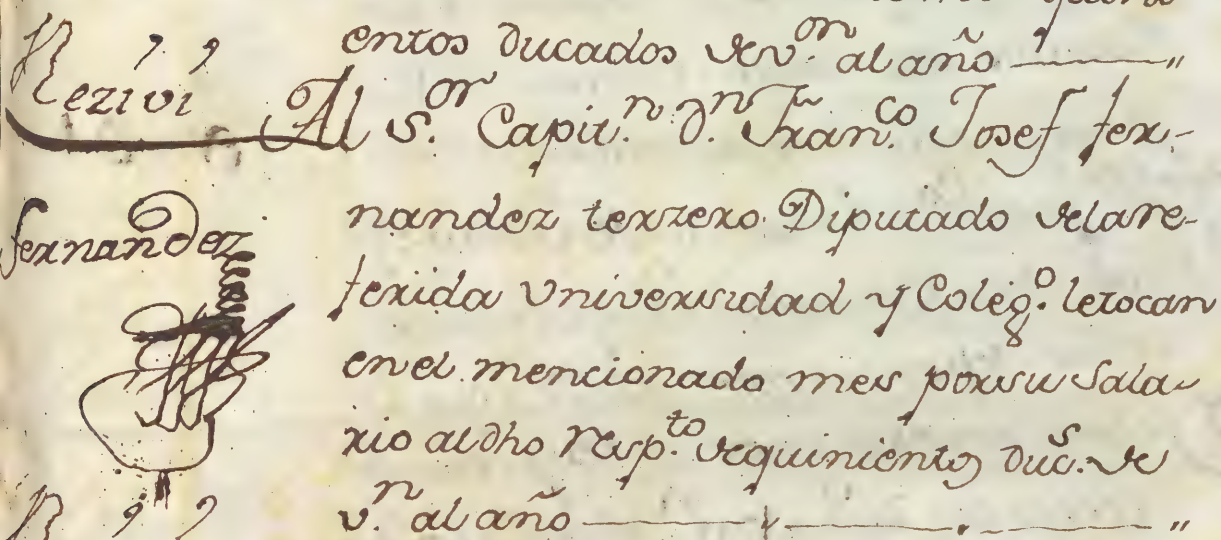 entos ducados de v.on al año
Rezivi
Al S.or Capit.n D.n Fran.co Josef fer-
nandez terzero Diputado de la re-
fernandez
ferida Universidad y Coleg.o le tocan
en el mencionado mes por su Sala-
rio al dho resp.to de quinientos duc.s de
v.n al año